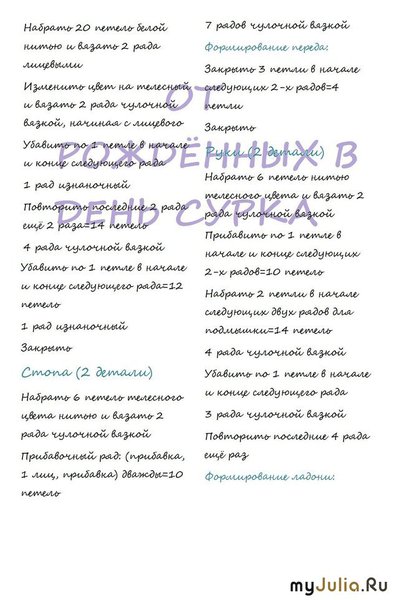 Набрать 20 петель белой
нитью и вязать 2 ряда
лицевыми
Изменить цвет на телесный
и вязать 2 ряда чулочной
вязкой, начиная с лицевого
Убавить по 1 петле в начале
и конце следующего ряда
1 ряд изнаночный
Повторить последние 2 ряда
ещё 2 раза=14 петель
4 ряда чулочной вязкой
Убавить по 1 петле в начале
и конце следующего ряда=12
петель
1 ряд изнаночный
Закрыть
Стопа (2 детали)
Набрать 6 петель телесного
цвета нитью и вязать 2
ряда чулочной вязкой
Прибавочный ряд: (прибавка,
1 лиц, прибавка) дважды=10
петель
7 рядов чулочной вязкой
Формирование переда:
Закрыть 3 петли в начале
следующих 2-х рядов=4
петли
Закрыть
Руки (2 детали)
Набрать 6 петель нитью
телесного цвета и вязать 2
ряда чулочной вязкой
Прибавить по 1 петле в
начале и конце следующих
2-х рядов=10 петель
Набрать 2 петли в начале
следующих двух рядов для
подмышки=14 петель
4 ряда чулочной вязкой
Убавить по 1 петле в начале
и конце следующего ряда
3 ряда чулочной вязкой
Повторить последние 4 ряда
ещё раз
Формирование ладони:
ОТ
РОЖДЁННЫХ В
ДЕНЬ СУРКА
myJulia.Ru